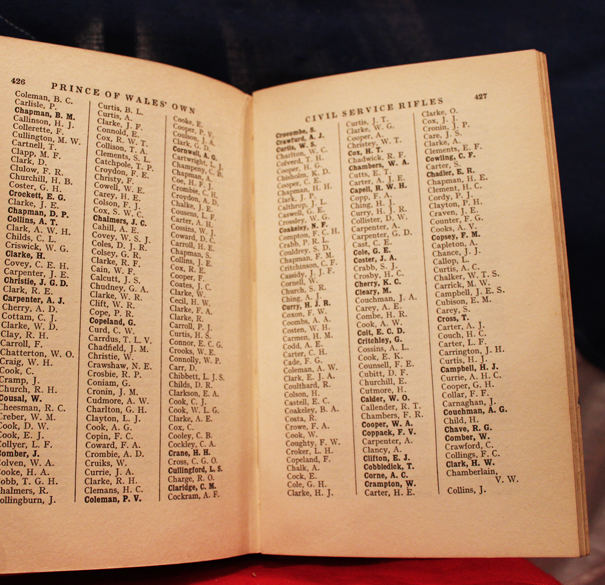 426
PRINCE OF WALES' OWN
Coleman, B. C.
Carlisle, P.
Chapman, B. M.
Callinson, H. J.
Collerette, F.
Cullington, M. W.
Cartnell, T.
Clapp, M. F.
Clark, D.
Clulow, F. R.
Churchill, H. B.
Coster, G. H.
Crockett, E. G.
Clarke, J. E.
Chapman, D. P.
Collins, A. T.
Clark, A. W. H.
Childs, C. L.
Criswick, W. G.
Clarke, H.
Covey, C. E. H.
Carpenter, J. E.
Christie, J. G. D.
Clark, R. E.
Carpenter, A. J.
Cherry, A. D.
Cottam, C. J.
Clarke, W. D.
Clay, R. H.
Carroll, P.
Chatterton, W. O.
Craig, W. H.
Cook, C.
Cramp, J.
Church, R. H.
Cousal, W.
Cheesman, R. C.
Creber, W. M.
Cook, D. W.
Cook, E. J.
Collyer, L. F.
Comber, J.
Colven, W. A.
Cooke, H. A.
Cobb, T. G. H.
Chalmers, R.
Collingburn, J.
Curtis, B. L.
Curtis, A.
Clarke, J. F.
Connold, E.
Cox, R. W. T.
Collison, T. A.
Clements, S. L.
Catchpole, T. P.
Croydon, F. E.
Christy, F.
Cowell, W. E.
Carey, H. E.
Colson, F. J.
Cox, S. W. C.
Chalmers, J. C.
Cahill, A. E.
Covey, W. S. J.
Coles, D. J. R.
Colsey, G. R.
Clarke, R. F.
Cain, W. F.
Calcutt, J. S.
Chudney, G. A.
Clarke, W. R.
Clift, W. R.
Cope, P. R.
Copeland, G.
Curd, C. W.
Carrdus, T. L. V.
Chadfield, J. M.
Christie, W.
Crawshaw, N. E.
Crosbie, R. P.
Coniam, G.
Cronin, J. M.
Cudmore, A. W.
Charlton, G. H.
Clayton, L. J.
Cook, A. G.
Copin, F. C.
Coward, F. A.
Crombie, A. D.
Cruiks, W.
Currie, J. A.
Clarke, R. H.
Clemans, H. C.
Coleman, P. V.
Cooke, E.
Cooper, P. V.
Coulson, J. A.
Clark, C. D.
Cornwall, A. G.
Cartwright,
Champeny, C. E.
Chapman,
Coe, H. F. J.
Crombie, C. H.
Croydon, A. D.
Chalke, J. E.
Cousens, L. F.
Carter, A. H.
Cossins, W. J.
Coward, D. C.
Carroll, H. E.
Chapman, S.
Collins, J. E.
Cox, R. E.
Cooper, F.
Coates, J. C.
Clarke, W.
Cecil, H. W.
Clarke, F. A.
Clarke, R.
Carroll, P. J.
Curtis, H. S.
Connor, E. C. G.
Crooks, W. E.
Connolly, W. P.
Carr, D.
Chibbett, L. J. S.
Childs, D. R.
Clarkson, E. A.
Cook, C. J.
Cook, W. L. G.
Clarke, A. E.
Cox, C.
Cooley, C. B.
Cockley, C. A.
Crane, H. H.
Cross, C. G. O.
Cullingford, L. S.
Charge, R. O.
Claridge, C. M.
Cockram, A. F.
CIVIL SERVICE RIFLES
427
Croscombe, S.
Crawford, A. J.
Curtis, W. S.
Charlton, W. C.
Colverd, T. H.
Cooper, H. G.
Chisholm, K. D.
Cooper, C. E.
Chapman, H. H.
Clark, J. P.
Calthrop, J. L.
Caswell, G. E.
Crossley, W. G.
Coakeley, N. F.
Compton, F. C. H.
Crabb, P. R. L.
Couldrey, S. D.
Chapman, F. M.
Critchinson, C. F.
Cassidy, J. J. F.
Cornell, W.
Church, S. R.
Ching, A. J.
Curry, H. J. R.
Coxon, F. W.
Coombs, A. A.
Costen, W. H.
Carmen, H. M.
Codd, A. E.
Carter, C. H.
Cade, F. G.
Coleman, A. W.
Clark, E. J. A.
Coulthard, R.
Colson, H.
Castell, E. C.
Coakeley, B. A.
Costa, R.
Crowe, F. A.
Cook, W.
Coughty, F. W.
Croker, L. H.
Copeland, F.
Chalk, A.
Cock, E.
Cole, G. H.
Clarke, H. J.
Curtis, J. T.
Clarke, W. G.
Cooper, A.
Christey, W. T.
Cox, H. T.
Chadwick, R. F.
Chambers, W. A.
Cutts, E. T.
Carter, A. J. E.
Capell, R. W. H.
Copp, F. A.
Ching, H. J.
Curry, H. J. R.
Collister, D. W.
Carpenter, A.
Carpenter, G. D.
Cast, C. E.
Cole, G. E.
Coster, J. A.
Crabb, S. J.
Crosby, H. C.
Cherry, K. C.
Cleary, M.
Couchman, J. A.
Carey, A. E.
Combe, H. R.
Cook, A. W.
Colt, E. C. D.
Critchley, G.
Cossins, A. L.
Cook, E. K.
Counsell, F. E.
Cubitt, D. F.
Churchill, E.
Cutmore, H.
Calder, W. O.
Callender, R. T.
Chambers, F. R.
Cooper, W. A.
Coppack, F. V.
Carpenter, A.
Clancy, A.
Clifton, E. J.
Cobbledick, T.
Corne, A. C.
Crampton, W.
Carter, H. E.
Clarke, O.
Cox, J. J.
Cronin, J. P.
Carr, J. S.
Clarke, A.
Clements, E. F.
Cowling, C. F.
Carter, S.
Chadler, E. R.
Chapman, H. E.
Clement, H. C.
Cordy, P. J.
Clayton, P. H.
Craven, J. E.
Counter, F. G.
Cooks, A. V.
Copsey, F. M.
Capleton, A.
Chance, J. J.
Callop, L.
Curtis, A. C.
Chalker, W. T. S.
Carrick, M. W.
Campbell, J. E. S.
Cubison, E. M.
Carey, S.
Cross, T.
Carter, A. J.
Couch, H. C.
Carter, L. F.
Carrington, J. H.
Curtis, H. J.
Campbell, H. J.
Currie, A. H. C.
Cooper, G. H.
Collar, F. F.
Carnaghan, J.
Couchman, A. G.
Child, H.
Chave, R. G.
Comber, W.
Crawford, C.
Collings, F. C.
Clark, H. W.
Chamberlain,
V. W.
Collins, J.